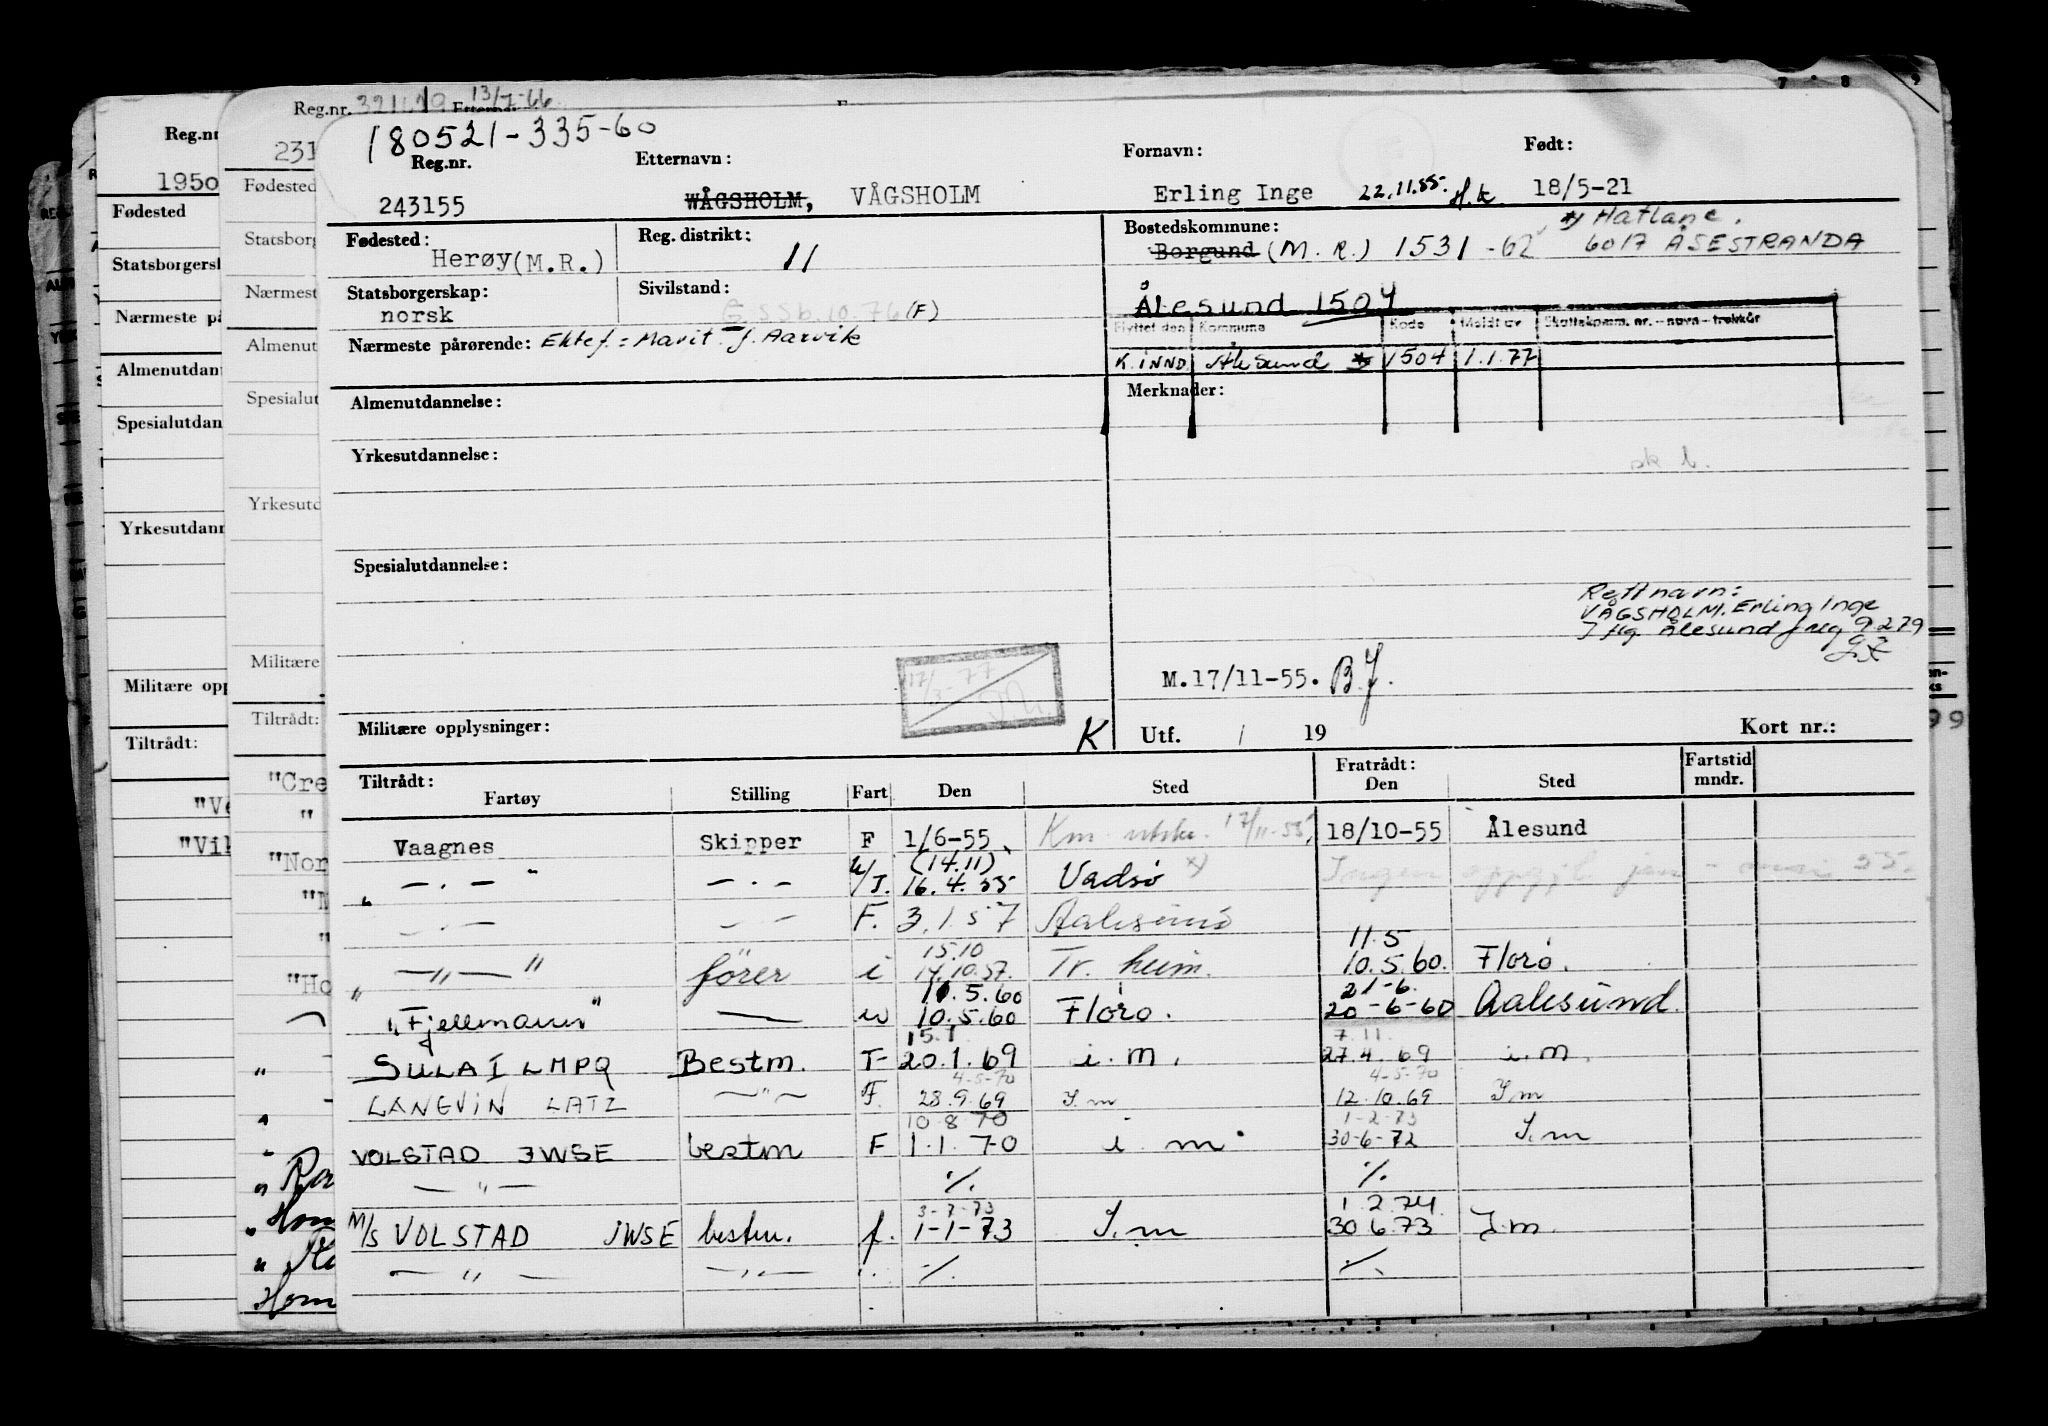 Reg.nr. 13/7-66
180521-335-60
Reg.nr. Etternavn: Fornavn: Født:
243155 WÅGSHOLM, VÅGSHOLM Erling Inge 22.11.55. H.K. 18/5-21
Fødested: Herøy (M.R.) Reg. distrikt: 11 Bostedskommune: Borgund (M.R.) 1531 -62 *) Hatlane, 6017 ÅSESTRANDA
Statsborgerskap: norsk Sivilstand: G SSb. 10.76 (F) Ålesund 1504
Flyttet den Kommune Kode Meldt av Skattekomm. nr. - navn - trekkår
Nærmeste pårørende: Ektef.: Marit f. Aarvik K. INND. Ålesund * 1504 1.1.77
Almenutdannelse: Merknader:
Yrkesutdannelse:
sk b.
Spesialutdannelse:
Rett navn:
VÅGSHOLM. Erling Inge
I flg. Ålesund f reg 9279
17/3-77
M.17/11-55. BJ.
Militære opplysninger: K Utf. / 19 Kort nr.:
Tiltrådt: Fratrådt: Fartstid
Fartøy Stilling Fart Den Sted Den Sted mndr.
Vaagnes Skipper F 1/6-55 Km utskr. 17/11-55, 18/10-55 Ålesund
" — . — " — . — u/I. (14.11) 16.4.55 Vadsø x) Ingen oppgj. jan - mai 55.
— . — — . — F. 3.1.57 Aalesund
" — " — " fører i 15.10 14.10.57. Tr. heim. 11.5 10.5.60. Florø.
"Fjellmann" — u 11.5.60 10.5.60 Florø. 21-6. 20-6-60 Aalesund.
SULA I LMPQ Bestm. T 15.1 20.1.69 i.m. 7.11. 27.4.69 i.m.
LANGVIN LATZ — " — F. 4-5-70 28.9.69 I.m 4-5-70 12.10.69 I.m
VOLSTAD JWSE bestm F 10.8.70 1.1.70 i m. 1-2-73 30-6-72 I.m
— " — ./. ./.
M/S VOLSTAD JWSE bestm. f. 3-7-73 1-1-73 I.m 1.2.74. 30.6.73 I.m.
— " — — " — " ./. ./.
Reg.nr
1950
Fødested
Statsborgersk
Nærmeste på
Almenutdan
Spesialutdan
Yrkesutdann
Militære opp
Tiltrådt:
"Ve
"Vik
231
Fødested
Statsborg
Nærmest
Almenut
Spesialut
Yrkesutd
Militære
Tiltrådt:
"Cre
"
"Nor
"M
"
"Ho
Hom
7 8 9
99